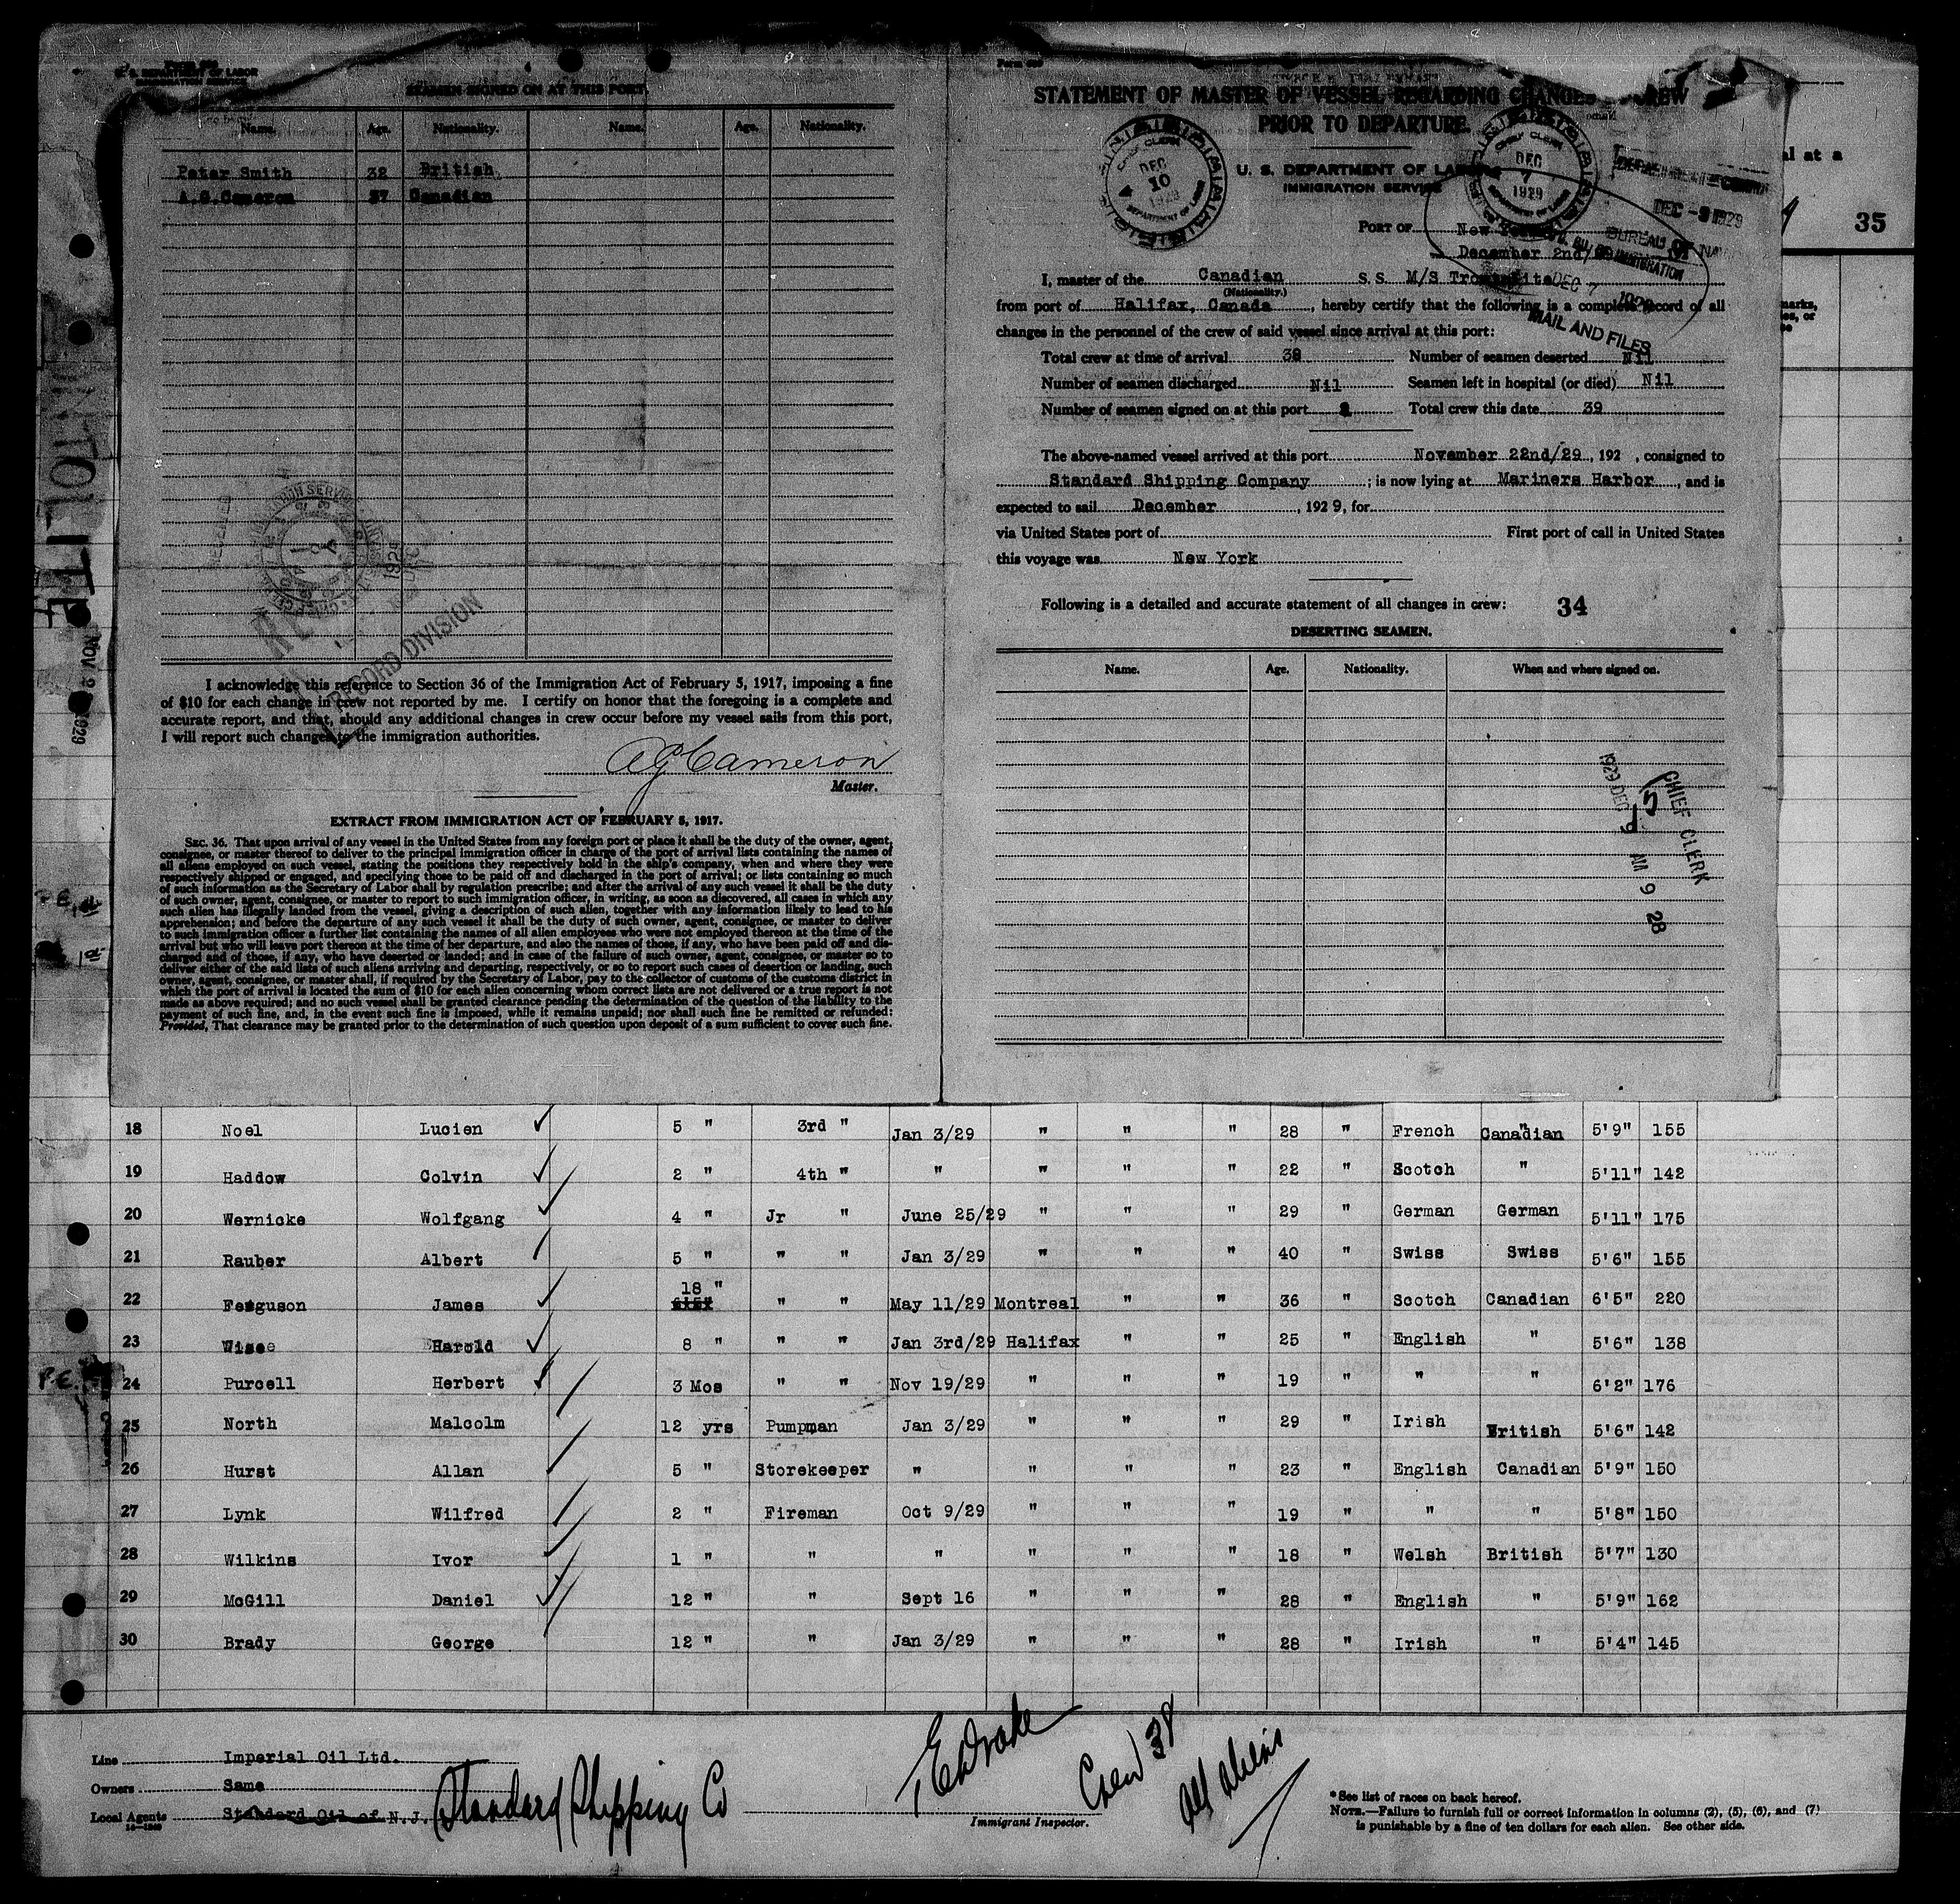 U. S. DEPARTMENT OF LABOR
SEAMEN SIGNED ON AT THIS PORT.
Name. Age. Nationality. Name. Age. Nationality.
Peter Smith 32 British
A.G.Cameron 37 Canadian
RECORD DIVISION
I acknowledge this reference to Section 36 of the Immigration Act of February 5, 1917, imposing a fine
of $10 for each change in crew not reported by me. I certify on honor that the foregoing is a complete and
accurate report, and that, should any additional changes in crew occur before my vessel sails from this port,
I will report such changes to the immigration authorities.
AGCameron
Master.
EXTRACT FROM IMMIGRATION ACT OF FEBRUARY 5, 1917.
SEC. 36. That upon arrival of any vessel in the United States from any foreign port or place it shall be the duty of the owner, agent,
consignee, or master thereof to deliver to the principal immigration officer in charge of the port of arrival lists containing the names of
all aliens employed on such vessel, stating the positions they respectively hold in the ship's company, when and where they were
respectively shipped or engaged, and specifying those to be paid off and discharged in the port of arrival; or lists containing so much
of such information as the Secretary of Labor shall by regulation prescribe; and after the arrival of any such vessel it shall be the duty
of such owner, agent, consignee, or master to report to such immigration officer, in writing, as soon as discovered, all cases in which any
such alien has illegally landed from the vessel, giving a description of such alien, together with any information likely to lead to his
apprehension; and before the departure of any such vessel it shall be the duty of such owner, agent, consignee, or master to deliver
to such immigration officer a further list containing the names of all alien employees who were not employed thereon at the time of the
arrival but who will leave port thereon at the time of her departure, and also the names of those, if any, who have been paid off and dis-
charged and of those, if any, who have deserted or landed; and in case of the failure of such owner, agent, consignee, or master so to
deliver either of the said lists of such aliens arriving and departing, respectively, or so to report such cases of desertion or landing, such
owner, agent, consignee, or master shall, if required by the Secretary of Labor, pay to the collector of customs of the customs district in
which the port of arrival is located the sum of $10 for each alien concerning whom correct lists are not delivered or a true report is not
made as above required; and no such vessel shall be granted clearance pending the determination of the question of the liability to the
payment of such fine, and, in the event such fine is imposed, while it remains unpaid; nor shall such fine be remitted or refunded:
Provided, That clearance may be granted prior to the determination of such question upon deposit of a sum sufficient to cover such fine.
STATEMENT OF MASTER OF VESSEL REGARDING CHANGES CREW
PRIOR TO DEPARTURE.
U. S. DEPARTMENT OF LABOR
IMMIGRATION SERVICE
CHIEF CLERK DEC 10 1929 DEPARTMENT OF LABOR
CHIEF CLERK DEC 7 1929 DEPARTMENT OF LABOR
DEC - 9 1929
BUREAU OF
IMMIGRATION
DEC 7 1929
MAIL AND FILES
35
PORT OF New York
December 2nd/29
I, master of the Canadian S. S. M/S
(Nationality.)
from port of Halifax, Canada, hereby certify that the following is a complete record of all
changes in the personnel of the crew of said vessel since arrival at this port:
Total crew at time of arrival 38 Number of seamen deserted Nil
Number of seamen discharged Nil Seamen left in hospital (or died) Nil
Number of seamen signed on at this port Total crew this date 39
The above-named vessel arrived at this port November 22nd/29, 192 , consigned to
Standard Shipping Company; is now lying at Mariners Harbor, and is
expected to sail December, 1929, for
via United States port of First port of call in United States
this voyage was New York
Following is a detailed and accurate statement of all changes in crew: 34
DESERTING SEAMEN.
Name. Age. Nationality. When and where signed on.
CHIEF CLERK
1929 DEC 9 AM 9 28
18 Noel Lucien 5 " 3rd " Jan 3/29 " " " 28 " French Canadian 5'9" 155
19 Haddow Colvin 2 " 4th " " " " " 22 " Scotch " 5'11" 142
20 Wernicke Wolfgang 4 " Jr " June 25/29 " " " 29 " German German 5'11" 175
21 Rauber Albert 5 " " " Jan 3/29 " " " 40 " Swiss Swiss 5'6" 155
22 Ferguson James 18 " " " May 11/29 Montreal " " 36 " Scotch Canadian 6'5" 220
23 Wise Harold 8 " " " Jan 3rd/29 Halifax " " 25 " English " 5'6" 138
P.E. 24 Purcell Herbert 3 Mos " " Nov 19/29 " " " 19 " " " 6'2" 176
25 North Malcolm 12 yrs Pumpman Jan 3/29 " " " 29 " Irish British 5'6" 142
26 Hurst Allan 5 " Storekeeper " " " " 23 " English Canadian 5'9" 150
27 Lynk Wilfred 2 " Fireman Oct 9/29 " " " 19 " " " 5'8" 150
28 Wilkins Ivor 1 " " " " " " 18 " Welsh British 5'7" 130
29 McGill Daniel 12 " " Sept 16 " " " 28 " English " 5'9" 162
30 Brady George 12 " " Jan 3/29 " " " 28 " Irish " 5'4" 145
Line Imperial Oil Ltd.
Owners Same
Local Agents Standard Oil of N.J. Standard Shipping Co
Immigrant Inspector.
Crew 38
all aliens
*See list of races on back hereof.
NOTE.—Failure to furnish full or correct information in columns (2), (5), (6), and (7)
is punishable by a fine of ten dollars for each alien. See other side.